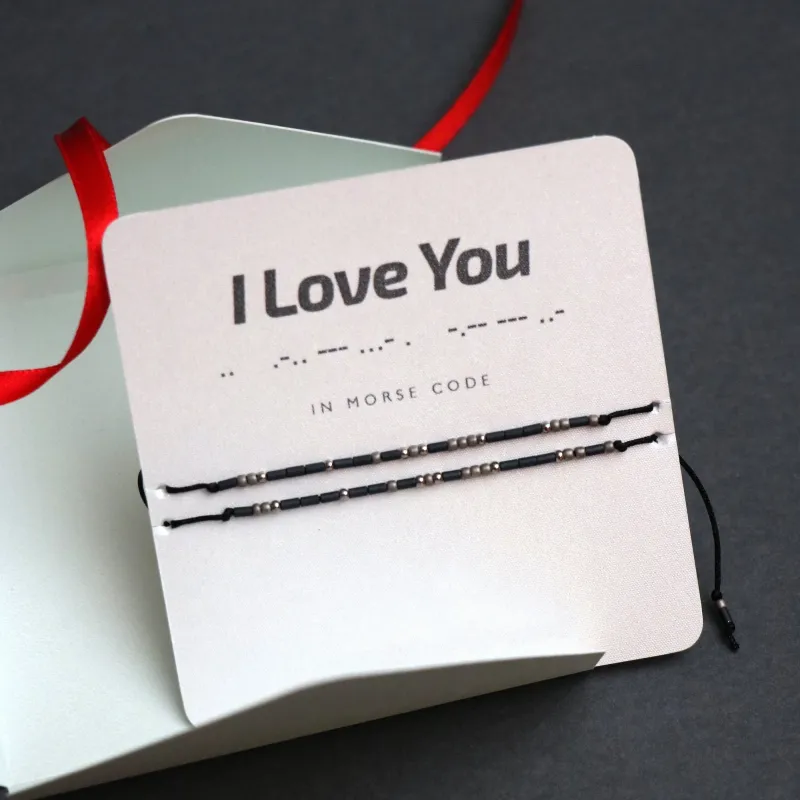 I Love You
.. .-.. --- ...- . -.-- --- ..-
IN MORSE CODE